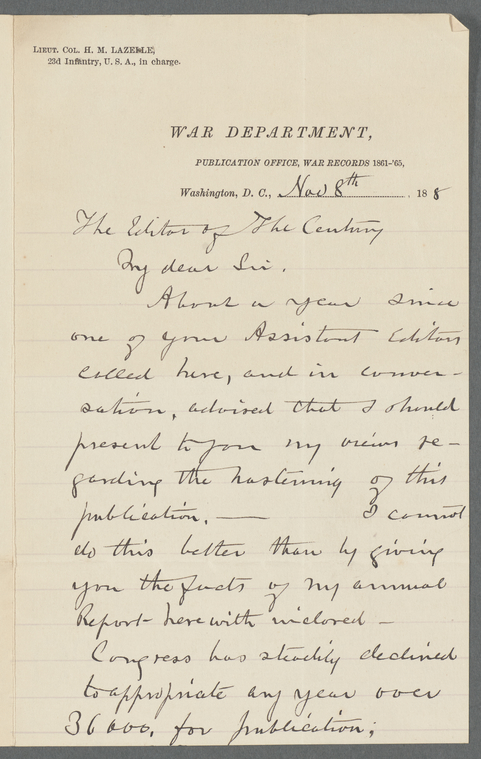 LIEUT. COL. H. M. LAZELLE,
23d Infantry, U. S. A., in charge.
WAR DEPARTMENT,
PUBLICATION OFFICE, WAR RECORDS 1861-'65,
Washington, D. C., Nov 8th 188
The Editor of The Century
My dear Sir.
About a year since
one of your Assistant Editors
called here, and in conver-
sation, advised that I should
present to you my views re-
garding the hastening of this
publication. — I cannot
do this better than by giving
you the facts of my annual
Report - herewith inclosed -
Congress has steadily declined
to appropriate any year over
36000. for publication;